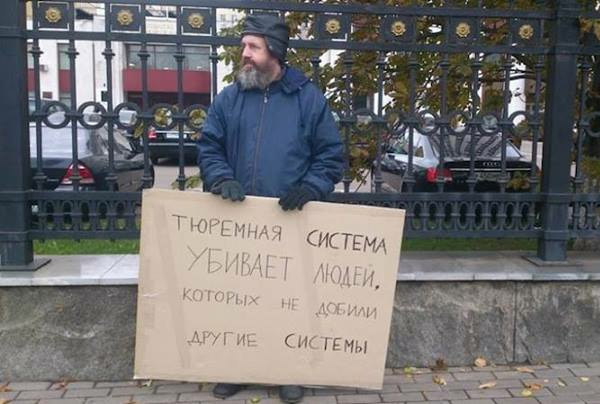 ТЮРЕМНАЯ СИСТЕМА
УБИВАЕТ ЛЮДЕЙ,
КОТОРЫХ НЕ ДОБИЛИ
ДРУГИЕ СИСТЕМЫ